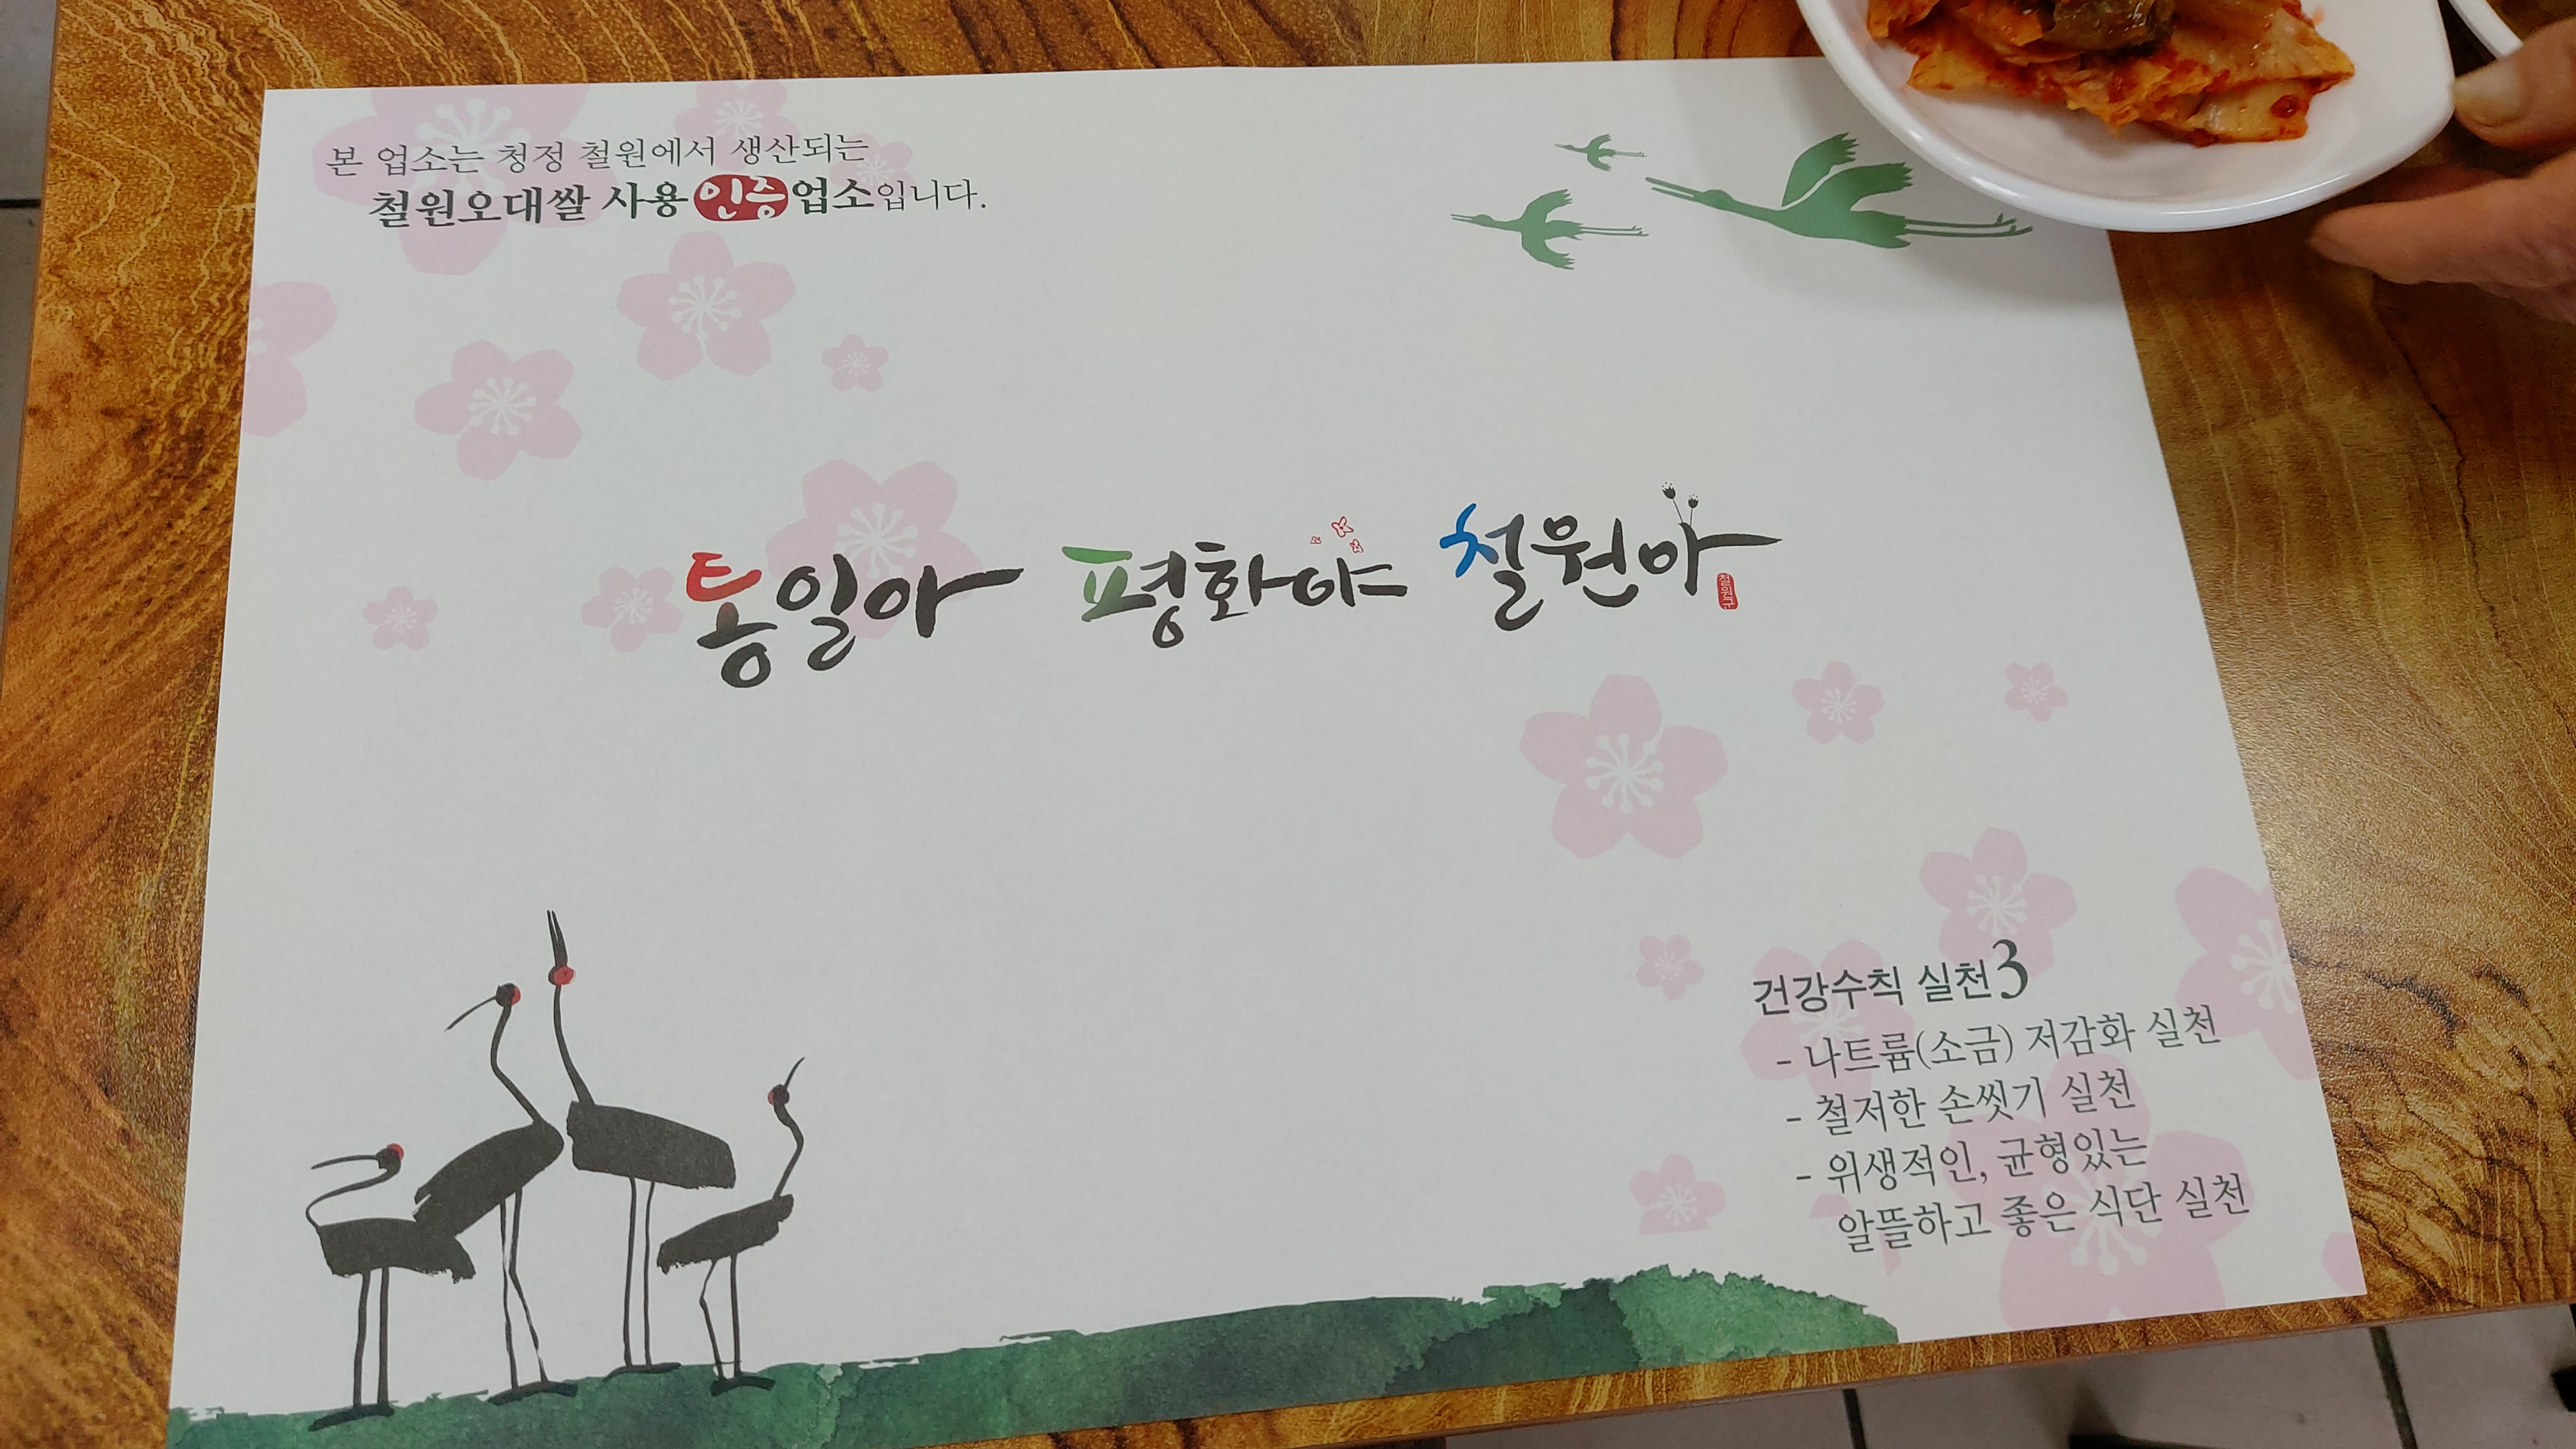 본 업소는 청정 철원에서 생산되는
철원오대쌀 사용 인증업소입니다.
통일아 평화야 철원아
철원군
건강수칙 실천3
- 나트륨(소금) 저감화 실천
- 철저한 손씻기 실천
- 위생적인, 균형있는
알뜰하고 좋은 식단 실천